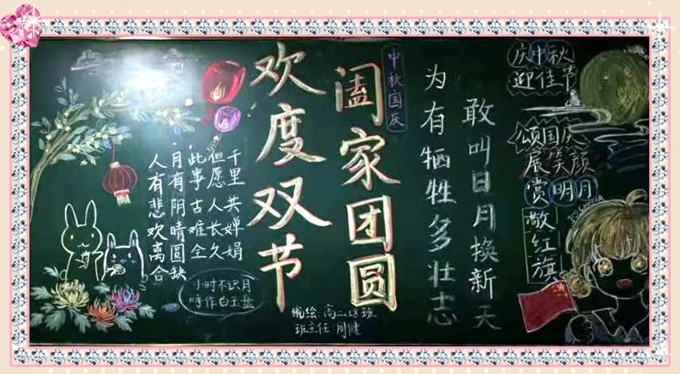 人有悲欢离合
月有阴晴圆缺
此事古难全
但愿人长久
千里共婵娟
小时不识月
呼作白玉盘
欢度双节
阖家团圆
中秋国庆
为有牺牲多壮志
敢叫日月换新天
庆中秋
迎佳节
颂国庆
展笑颜
赏明月
敬红旗
编绘 高二
班主任 周健